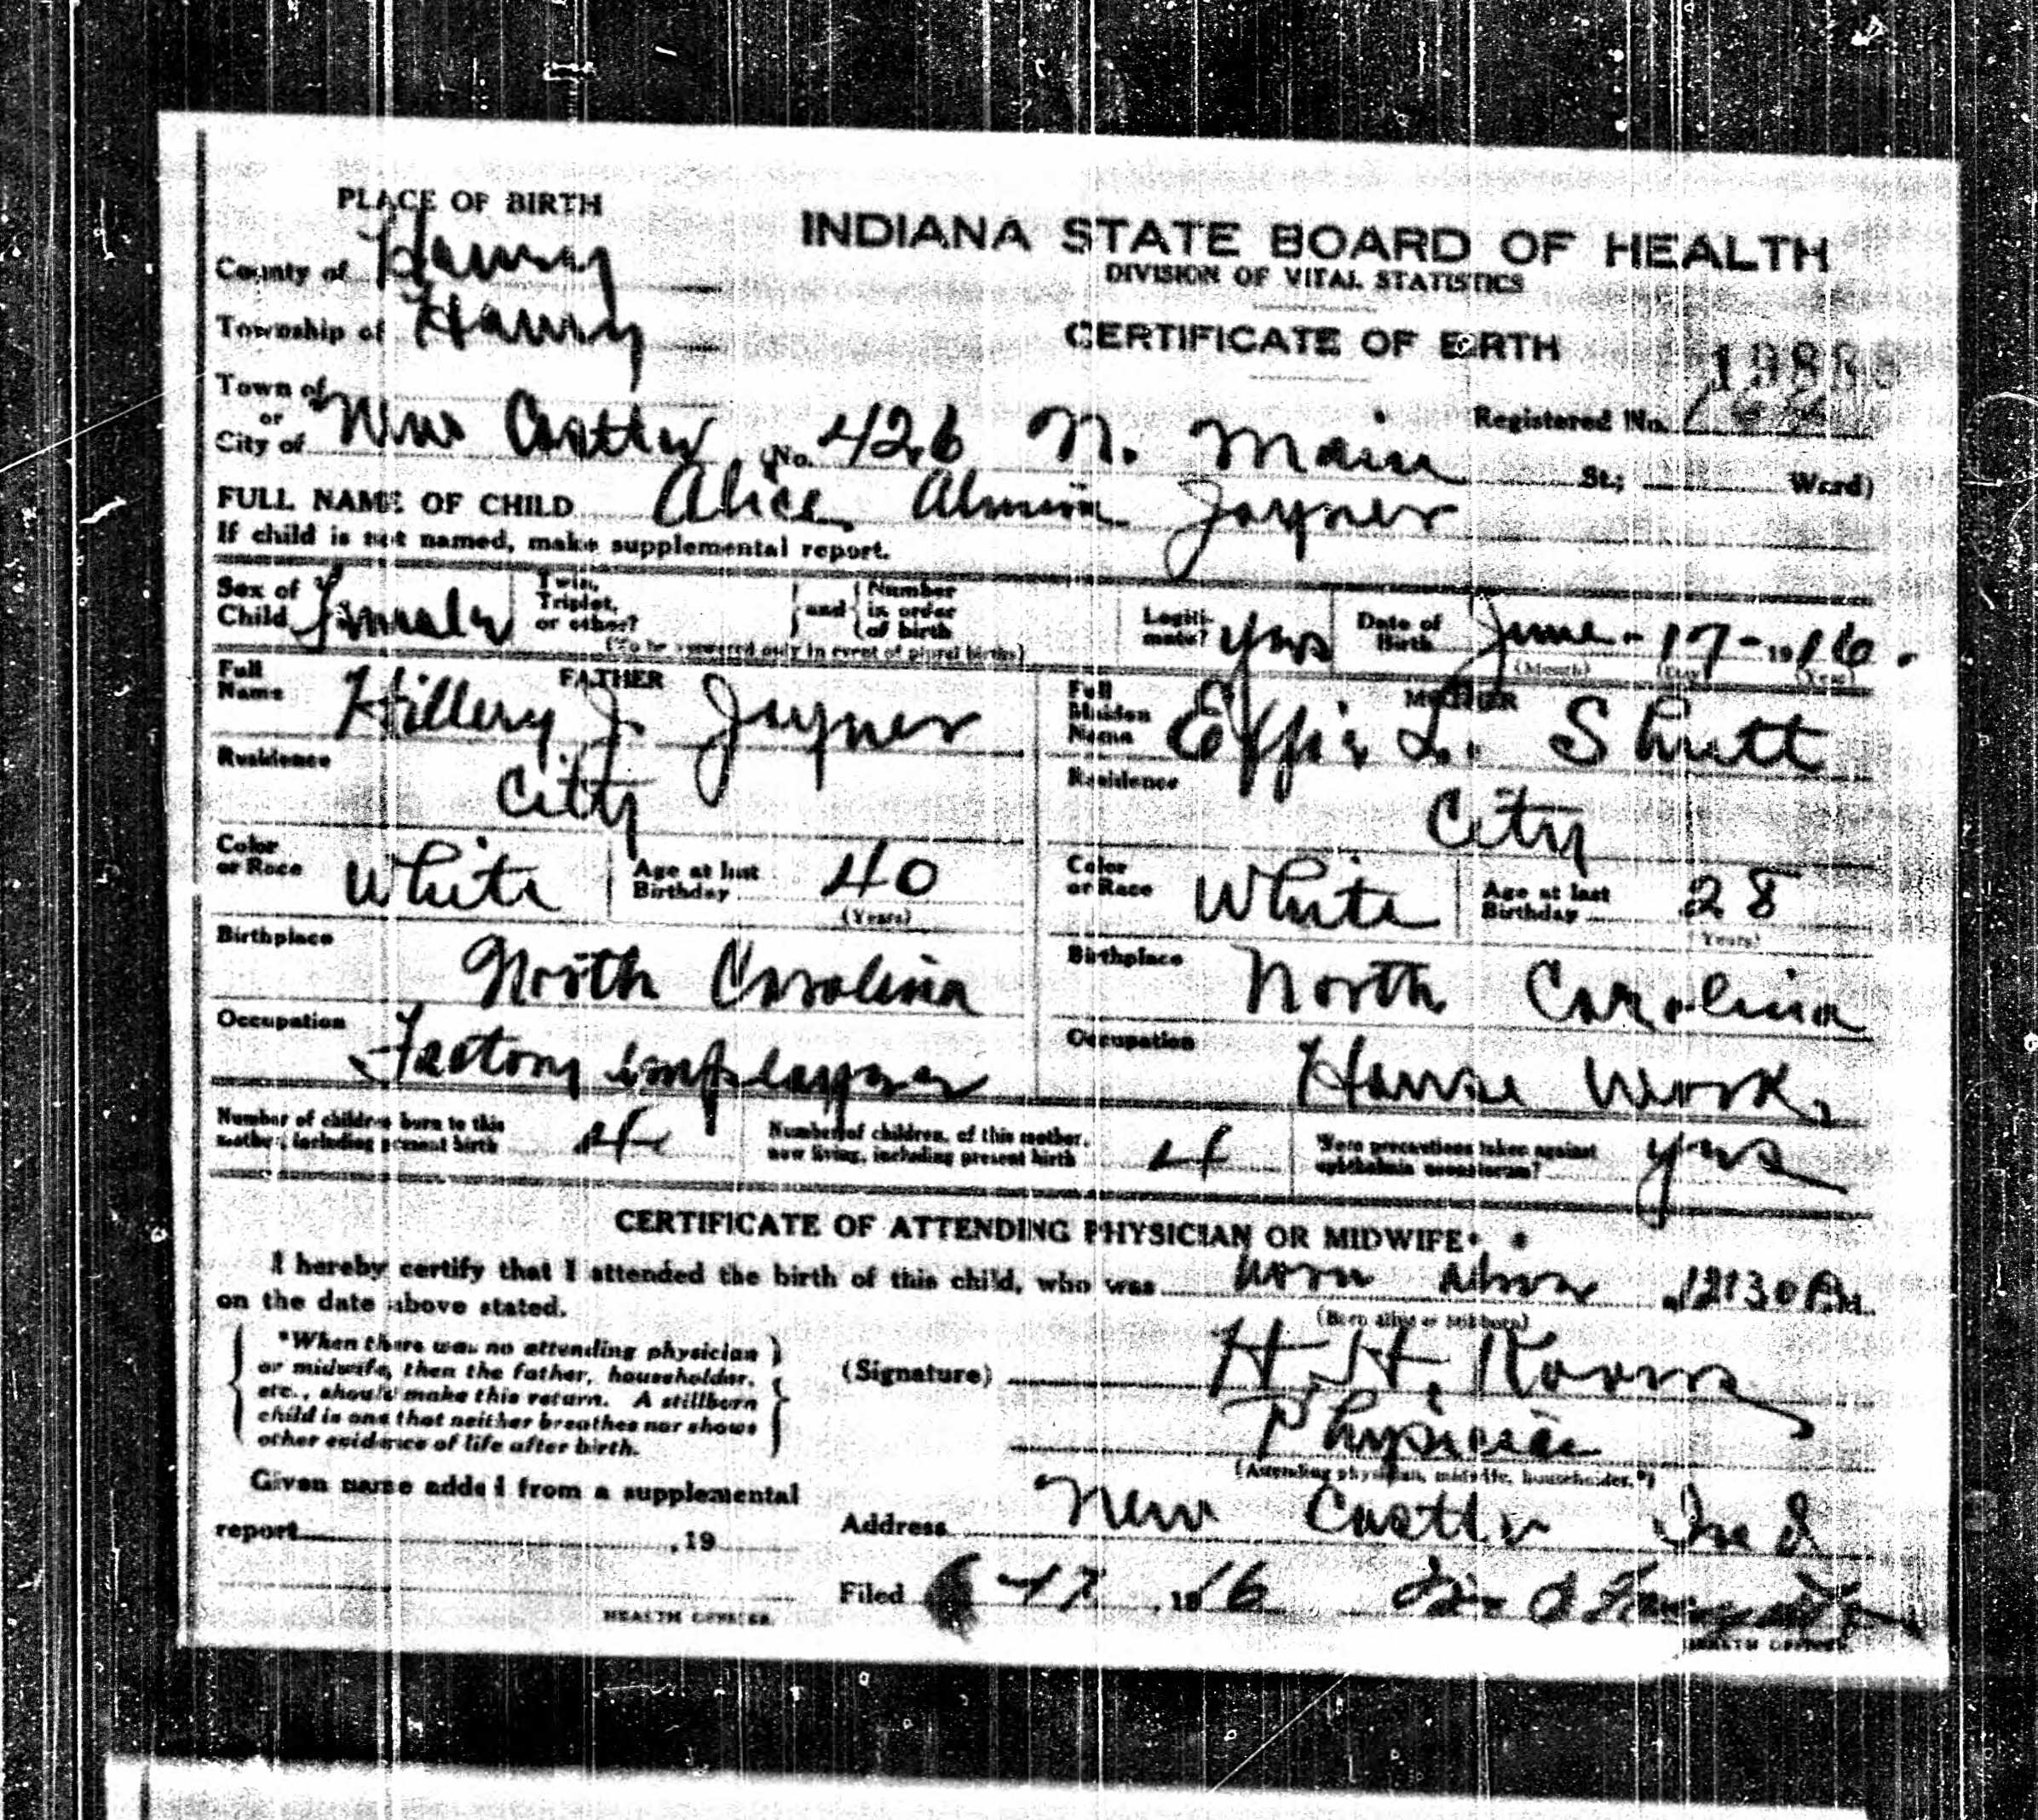 PLACE OF BIRTH
INDIANA STATE BOARD OF HEALTH
DIVISION OF VITAL STATISTICS
CERTIFICATE OF BIRTH
County of Henry
Township of Henry
Town of
or
City of New Castle (No. 426 N. Main St.; Ward)
Registered No.
FULL NAME OF CHILD Alice Almira Joyner
If child is not named, make supplemental report.
Sex of Child female
Twin, Triplet, or other?
and
Number in order of birth
(To be answered only in event of plural births)
Legitimate? yes
Date of Birth June - 17 - 1916.
(Month) (Day) (Year)
FATHER
Full Name Hillery J. Joyner
Residence City
Color or Race White
Age at last Birthday 40
(Years)
Birthplace North Carolina
Occupation Factory employee
MOTHER
Full Maiden Name Effie L. Shutt
Residence City
Color or Race White
Age at last Birthday 28
(Years)
Birthplace North Carolina
Occupation House Work
Number of children born to this mother, including present birth 4
Number of children, of this mother, now living, including present birth 4
Were precautions taken against ophthalmia neonatorum? yes
CERTIFICATE OF ATTENDING PHYSICIAN OR MIDWIFE*
I hereby certify that I attended the birth of this child, who was born alive 12:30
on the date above stated.
(Born alive or stillborn)
*When there was no attending physician
or midwife, then the father, householder,
etc., should make this return. A stillborn
child is one that neither breathes nor shows
other evidence of life after birth.
(Signature) H. H. Koons
Physician
(Attending physician, midwife, householder.*)
Given name added from a supplemental
report , 19
HEALTH OFFICER.
Address New Castle Ind
Filed 6 - 17, 1916
HEALTH OFFICER.